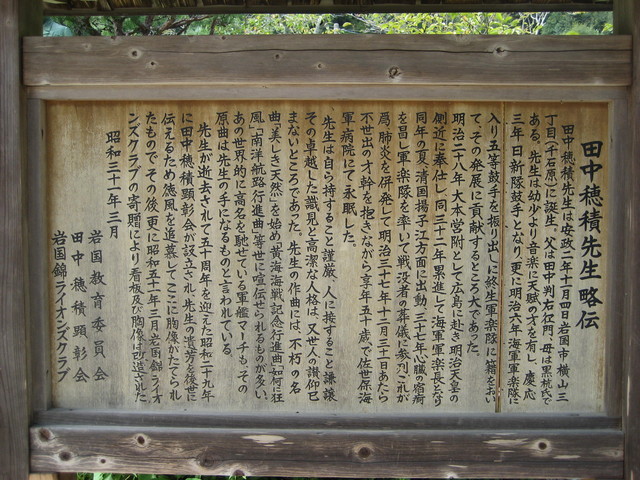 田中穂積先生略伝
田中 穂積先生は安政二年十一月四日岩国市横山三
丁目(千石原)に誕生、父は田中判右衛門、母は黒杭氏で
ある。先生は幼少より音楽に天賦の才を有し、慶応
三年日新隊鼓手となり、更に明治六年海軍軍楽隊に
入り五等鼓手を振り出しに終生軍楽隊に籍をおい
て、その発展に貢献するところ大であった。
明治二十八年大本営附として広島に赴き明治天皇の
側近に奉仕し、同三十二年累進して海軍軍楽長となり
同年の夏、清国揚子江方面に出動、三十七年心臓の宿痾
を冒し軍楽隊を率いて戦没者の葬儀に参列、これが
為肺炎を併発して、明治三十七年十二月三十一日あたら
不世出の才幹を抱きながら享年五十歳で佐世保海
軍病院にて永眠した。
先生は自ら持すること謹厳、人に接すること謙譲
その卓越した識見と高潔な人格は、又世人の讃仰巳
まないところであった。先生の作曲には、不朽の名
曲「美しき天然」を始め「黄海海戦記念行進曲」「如何に狂
風」「南洋航路行進曲」等世に喧伝せられるものが多い。
あの世界的に高名を馳せている軍艦マーチも、その
原曲は先生の手になるものと言われている。
先生が逝去されて五十周年を迎えた昭和二十九年
に田中穂積顕彰会が設立され、先生の遺芳を後世に
伝えるため徳風を追慕してここに胸像がたてられ
たもので、その後更に昭和五十一年三月岩国錦ライオ
ンズクラブの寄贈により看板及び胸像は改造された
昭和三十一年三月
岩国教育委員会
田中穂積顕彰会
岩国錦ライオンズクラブ